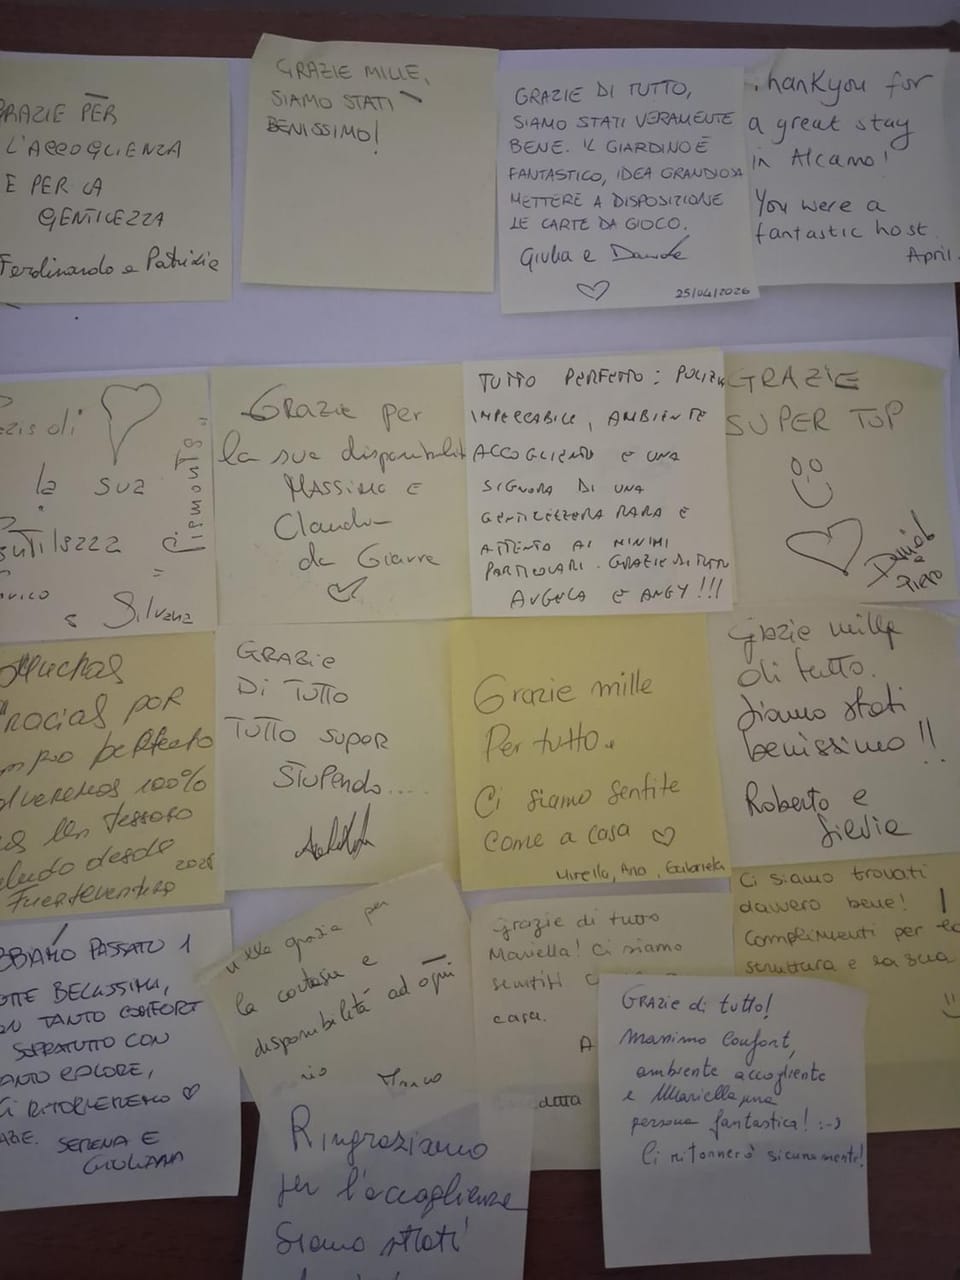 GRAZIE PER
L'ACCOGLIENZA
E PER LA
GENTILEZZA
Ferdinando e Patrizia
GRAZIE MILLE,
SIAMO STATI
BENISSIMO!
GRAZIE DI TUTTO,
SIAMO STATI VERAMENTE
BENE. IL GIARDINO È
FANTASTICO, IDEA GRANDIOSA
METTERE A DISPOSIZIONE
LE CARTE DA GIOCO.
Giulia e Davide
25/04/2026
Thank you for
a great stay
in Alcamo!
You were a
fantastic host.
April.
di
la sua
e Silvana
Grazie per
la sua disponibilit
MASSIMO E
Claudia
da Giarre
TUTTO PERFETTO: PULIZIA
IMPECCABILE, AMBIENTE
ACCOGLIENTE E UNA
SIGNORA DI UNA
GENTILEZZA RARA E
ATTENTA AI MINIMI
PARTICOLARI. GRAZIE DI TUTTO
E ANGY!!!
GRAZIE
SUPER TOP
Piero
Muchas
Gracias por
perfecto
volveremos 100%
desde
Fuerteventura 2025
GRAZIE
DI TUTTO
TUTTO SUPER
STUPENDO....
Grazie mille
Per tutto.
Ci siamo sentite
come a casa
Mirella, Ana, Gabriela
Grazie mille
di tutto.
Siamo stati
benissimo!!
Roberto e
Silvia
BBIAMO PASSATO 1
OTTE BELLISSIMA,
ON TANTO COMFORT
SOPRATUTTO CON
ANTO CALORE,
CI RITORNEREMO
SERENA E
GIULIANA
Mille grazie per
la cortesia e
disponibilità ad ogni
Ringraziamo
per l'accoglienza
Siamo stati
Grazie di tutto
Mariella! Ci siamo
sentiti
casa.
A
Ci siamo trovati
davvero bene!
Complimenti per la
struttura e la sua
Grazie di tutto!
Massimo Confort,
ambiente accogliente
e Mariella una
persona fantastica! :-)
Ci ritornerò sicuramente!